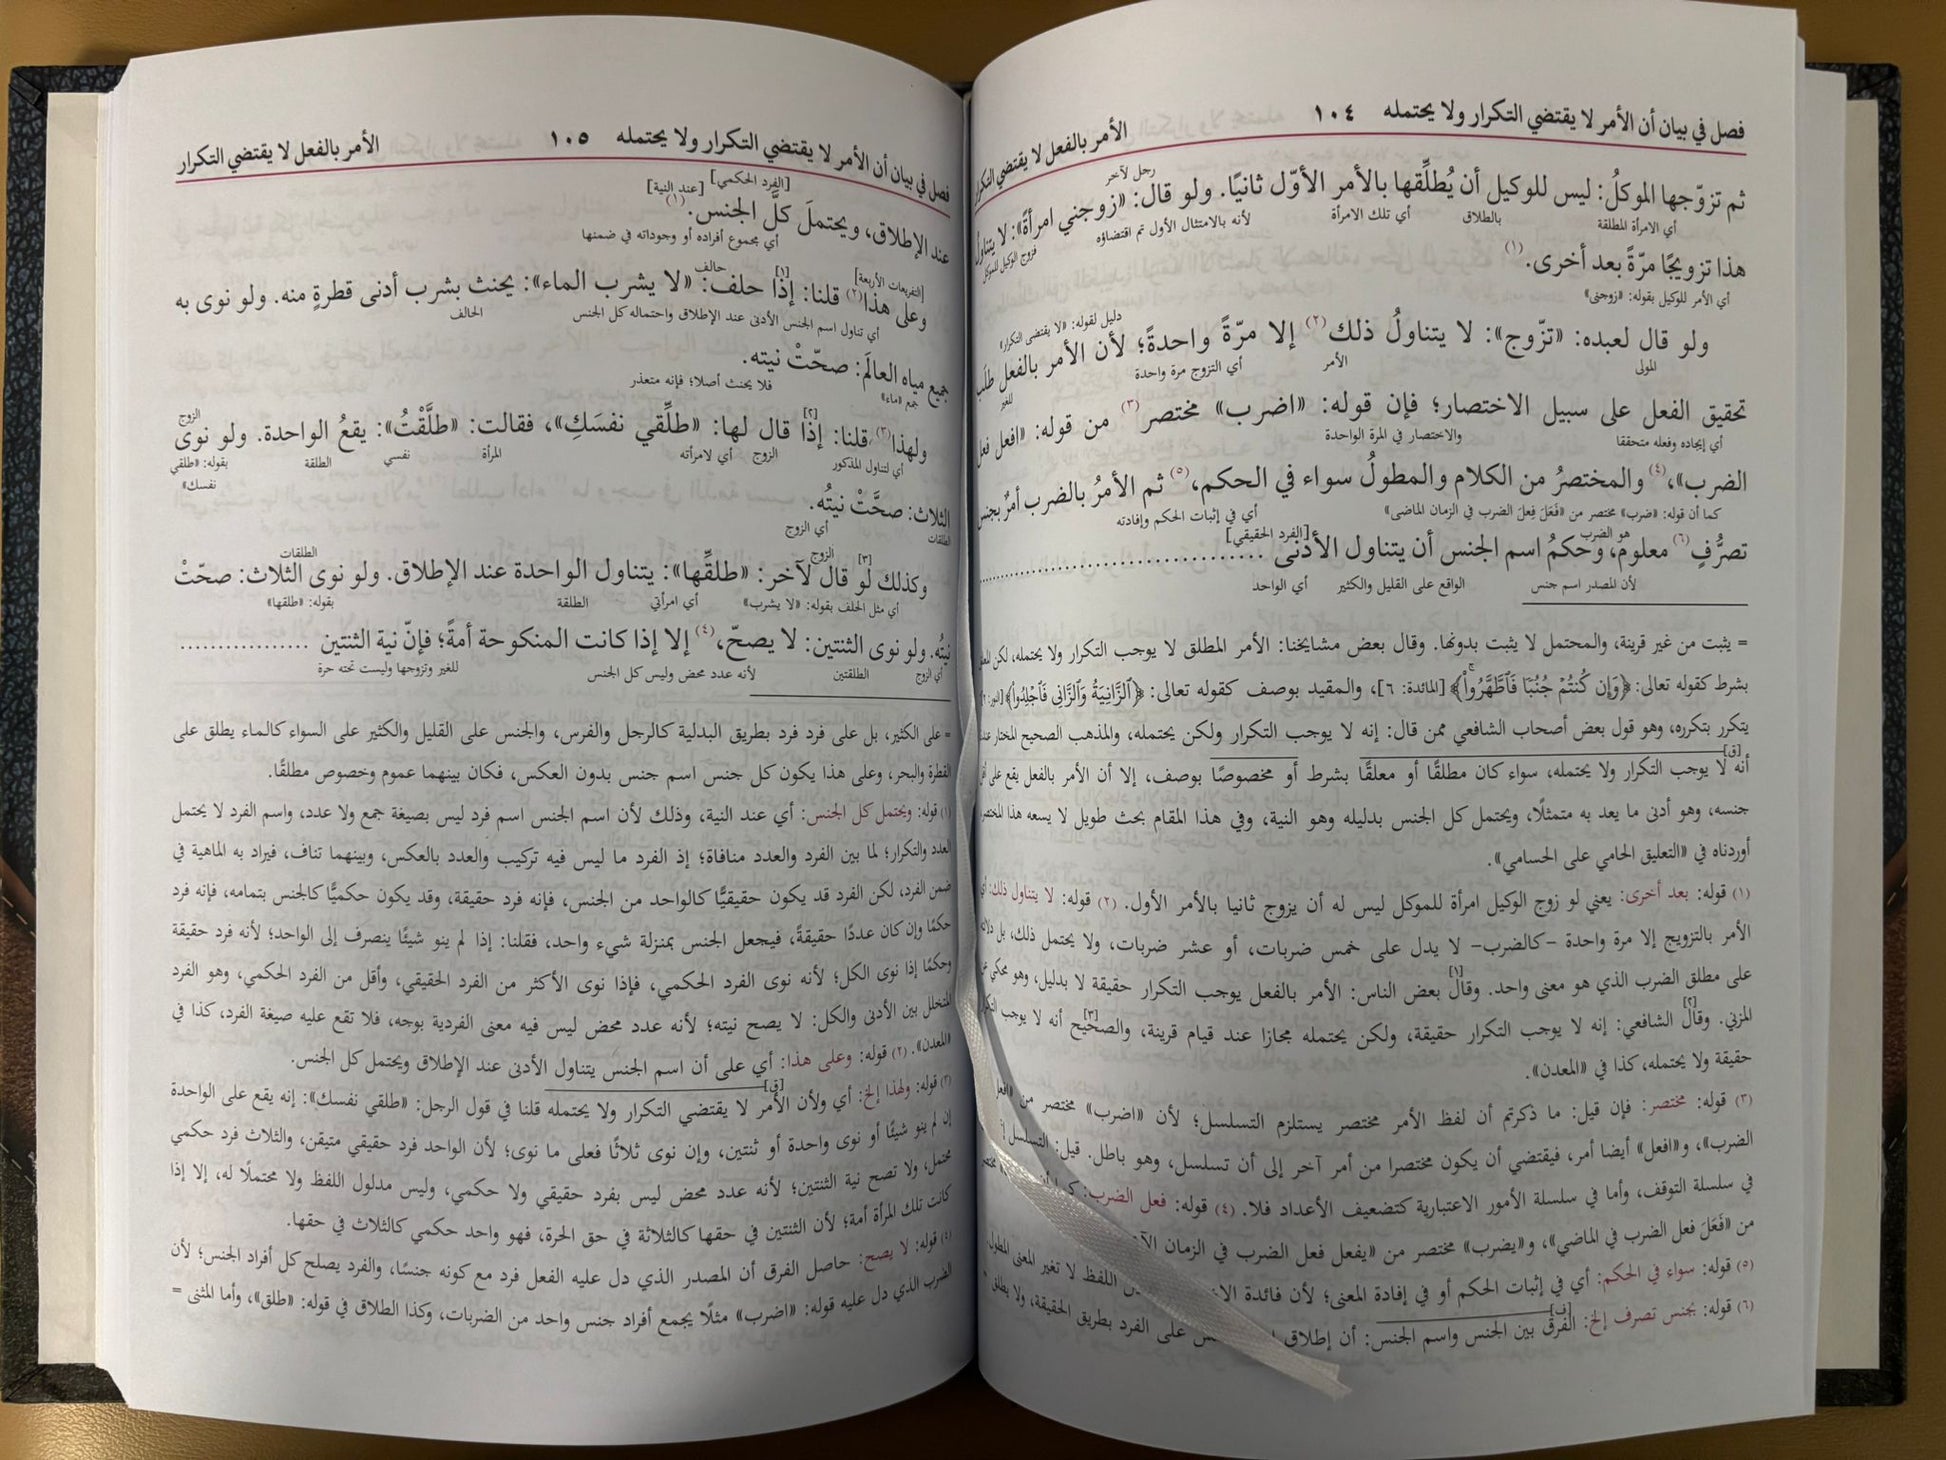 فصل في بيان أن الأمر لا يقتضي التكرار ولا يحتمله ١٠٤ الأمر بالفعل لا يقتضي التكرار
رجل لآخر
ثم تزوّجها الموكلُ: ليس للوكيل أن يُطلِّقها بالأمر الأوّل ثانيًا. ولو قال: «زوجني امرأةً»: لا يتناول
أي الامرأة المطلقة بالطلاق أي تلك الامرأة لأنه بالامتثال الأول تم اقتضاؤه فزوج الوكيل للموكل
هذا تزويجًا مرّةً بعد أخرى.(١)
أي الأمر للوكيل بقوله: «زوجنى»
دليل لقوله: «لا يقتضى التكرار»
ولو قال لعبده: «تزّوج»: لا يتناولُ ذلك(٢) إلا مرّةً واحدةً؛ لأن الأمر بالفعل طلَب
المولى الأمر أي التزوج مرة واحدة للغير
تحقيق الفعل على سبيل الاختصار؛ فإن قوله: «اضرب» مختصر(٣) من قوله: «افعل فعل
أي إيجاده وفعله متحققا والاختصار في المرة الواحدة
الضرب»،(٤) والمختصرُ من الكلام والمطولُ سواء في الحكم،(٥) ثم الأمرُ بالضرب أمرٌ بجنس
كما أن قوله: «ضرب» مختصر من «فَعَلَ فِعلَ الضرب في الزمان الماضى» أي في إثبات الحكم وإفادته
هو الضرب [الفرد الحقيقي]
تصرُّفٍ(٦) معلوم، وحكمُ اسم الجنس أن يتناول الأدنى ..............................
لأن المصدر اسم جنس الواقع على القليل والكثير أي الواحد
= يثبت من غير قرينة، والمحتمل لا يثبت بدونها. وقال بعض مشايخنا: الأمر المطلق لا يوجب التكرار ولا يحتمله، لكن المعلق
بشرط كقوله تعالى: ﴿وَإِن كُنتُمْ جُنُبًا فَٱطَّهَّرُوا۟﴾ [المائدة: ٦]، والمقيد بوصف كقوله تعالى: ﴿ٱلزَّانِيَةُ وَٱلزَّانِي فَٱجْلِدُوا۟﴾ [النور: ٢]
يتكرر بتكرره، وهو قول بعض أصحاب الشافعي ممن قال: إنه لا يوجب التكرار ولكن يحتمله، والمذهب الصحيح المختار عندنا
[ق]
أنه لا يوجب التكرار ولا يحتمله، سواء كان مطلقًا أو معلقًا بشرط أو مخصوصًا بوصف، إلا أن الأمر بالفعل يقع على أقل
جنسه، وهو أدنى ما يعد به متمثلًا، ويحتمل كل الجنس بدليله وهو النية، وفي هذا المقام بحث طويل لا يسعه هذا المختصر،
أوردناه في «التعليق الحامي على الحسامي».
(١) قوله: بعد أخرى: يعني لو زوج الوكيل امرأة للموكل ليس له أن يزوج ثانيا بالأمر الأول. (٢) قوله: لا يتناول ذلك: أي
الأمر بالتزويج إلا مرة واحدة -كالضرب- لا يدل على خمس ضربات، أو عشر ضربات، ولا يحتمل ذلك، بل دلالته
على مطلق الضرب الذي هو معنى واحد. وقال[١] بعض الناس: الأمر بالفعل يوجب التكرار حقيقة لا بدليل، وهو محكي عن
المزني. وقال[٢] الشافعي: إنه لا يوجب التكرار حقيقة، ولكن يحتمله مجازا عند قيام قرينة، والصحيح[٣] أنه لا يوجب التكرار
حقيقة ولا يحتمله، كذا في «المعدن».
(٣) قوله: مختصر: فإن قيل: ما ذكرتم أن لفظ الأمر مختصر يستلزم التسلسل؛ لأن «اضرب» مختصر من «افعل
الضرب»، و«افعل» أيضا أمر، فيقتضي أن يكون مختصرا من أمر آخر إلى أن تسلسل، وهو باطل. قيل: التسلسل
في سلسلة التوقف، وأما في سلسلة الأمور الاعتبارية كتضعيف الأعداد فلا. (٤) قوله: فعل الضرب: كما أن
من «فَعَلَ فعل الضرب في الماضي»، و«يضرب» مختصر من «يفعل فعل الضرب في الزمان
(٥) قوله: سواء في الحكم: أي في إثبات الحكم أو في إفادة المعنى؛ لأن فائدة اللفظ لا تغير المعنى المطول
(٦) قوله: بجنس تصرف إلخ: الفرق[ف] بين الجنس واسم الجنس: أن إطلاق على الفرد بطريق الحقيقة، ولا يطلق =
فصل في بيان أن الأمر لا يقتضي التكرار ولا يحتمله ١٠٥ الأمر بالفعل لا يقتضي التكرار
[الفرد الحكمي] [عند النية]
عند الإطلاق، ويحتملَ كلَّ الجنس.(١)
أي مجموع أفراده أو وجوداته في ضمنها
[التفريعات الأربعة] [١] حالف
وعلى هذا(٢) قلنا: إذا حلف: «لا يشرب الماء»: يحنث بشرب أدنى قطرةٍ منه. ولو نوى به
أي تناول اسم الجنس الأدنى عند الإطلاق واحتماله كل الجنس الحالف
جميع مياه العالَم: صحّتْ نيته.
جمع «ماء» فلا يحنث أصلا؛ فإنه متعذر
[٢] الزوج
ولهذا(٣) قلنا: إذا قال لها: «طلِّقي نفسَكِ»، فقالت: «طلَّقْتُ»: يقعُ الواحدة. ولو نوى
أي لتناول المذكور الزوج أي لامرأته المرأة نفسي الطلقة بقوله: «طلقي نفسك»
الثلاث: صحَّتْ نيتُه.
الطلقات أي الزوج
[٣] الزوج الطلقات
وكذلك لو قال لآخر: «طلقِّها»: يتناول الواحدة عند الإطلاق. ولو نوى الثلاث: صحّتْ
أي مثل الحلف بقوله: «لا يشرب» أي امرأتي الطلقة بقوله: «طلقها»
نيتُه. ولو نوى الثنتين: لا يصحّ،(٤) إلا إذا كانت المنكوحة أمةً؛ فإنّ نية الثنتين .................
أي الزوج الطلقتين لأنه عدد محض وليس كل الجنس للغير وتزوجها وليست تحته حرة
= على الكثير، بل على فرد فرد بطريق البدلية كالرجل والفرس، والجنس على القليل والكثير على السواء كالماء يطلق على
القطرة والبحر، وعلى هذا يكون كل جنس اسم جنس بدون العكس، فكان بينهما عموم وخصوص مطلقًا.
(١) قوله: ويحتمل كل الجنس: أي عند النية، وذلك لأن اسم الجنس اسم فرد ليس بصيغة جمع ولا عدد، واسم الفرد لا يحتمل
العدد والتكرار؛ لما بين الفرد والعدد منافاة؛ إذ الفرد ما ليس فيه تركيب والعدد بالعكس، وبينهما تناف، فيراد به الماهية في
ضمن الفرد، لكن الفرد قد يكون حقيقيًّا كالواحد من الجنس، فإنه فرد حقيقة، وقد يكون حكميًّا كالجنس بتمامه، فإنه فرد
حكمًا وإن كان عددًا حقيقةً، فيجعل الجنس بمنزلة شيء واحد، فقلنا: إذا لم ينو شيئًا ينصرف إلى الواحد؛ لأنه فرد حقيقة
وحكمًا إذا نوى الكل؛ لأنه نوى الفرد الحكمي، فإذا نوى الأكثر من الفرد الحقيقي، وأقل من الفرد الحكمي، وهو الفرد
المتخلل بين الأدنى والكل: لا يصح نيته؛ لأنه عدد محض ليس فيه معنى الفردية بوجه، فلا تقع عليه صيغة الفرد، كذا في
«المعدن». (٢) قوله: وعلى هذا: أي على أن اسم الجنس يتناول الأدنى عند الإطلاق ويحتمل كل الجنس.
(٣) قوله: ولهذا إلخ: أي ولأن الأمر[ق] لا يقتضي التكرار ولا يحتمله قلنا في قول الرجل: «طلقي نفسك»: إنه يقع على الواحدة
إن لم ينو شيئًا أو نوى واحدة أو ثنتين، وإن نوى ثلاثًا فعلى ما نوى؛ لأن الواحد فرد حقيقي متيقن، والثلاث فرد حكمي
محتمل، ولا تصح نية الثنتين؛ لأنه عدد محض ليس بفرد حقيقي ولا حكمي، وليس مدلول اللفظ ولا محتملًا له، إلا إذا
كانت تلك المرأة أمة؛ لأن الثنتين في حقها كالثلاثة في حق الحرة، فهو واحد حكمي كالثلاث في حقها.
(٤) قوله: لا يصح: حاصل الفرق أن المصدر الذي دل عليه الفعل فرد مع كونه جنسًا، والفرد يصلح كل أفراد الجنس؛ لأن
الضرب الذي دل عليه قوله: «اضرب» مثلًا يجمع أفراد جنس واحد من الضربات، وكذا الطلاق في قوله: «طلق»، وأما المثنى =